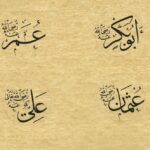 أبو بكر رضي الله عنه
عمر رضي الله عنه
عثمان رضي الله عنه
علي رضي الله عنه